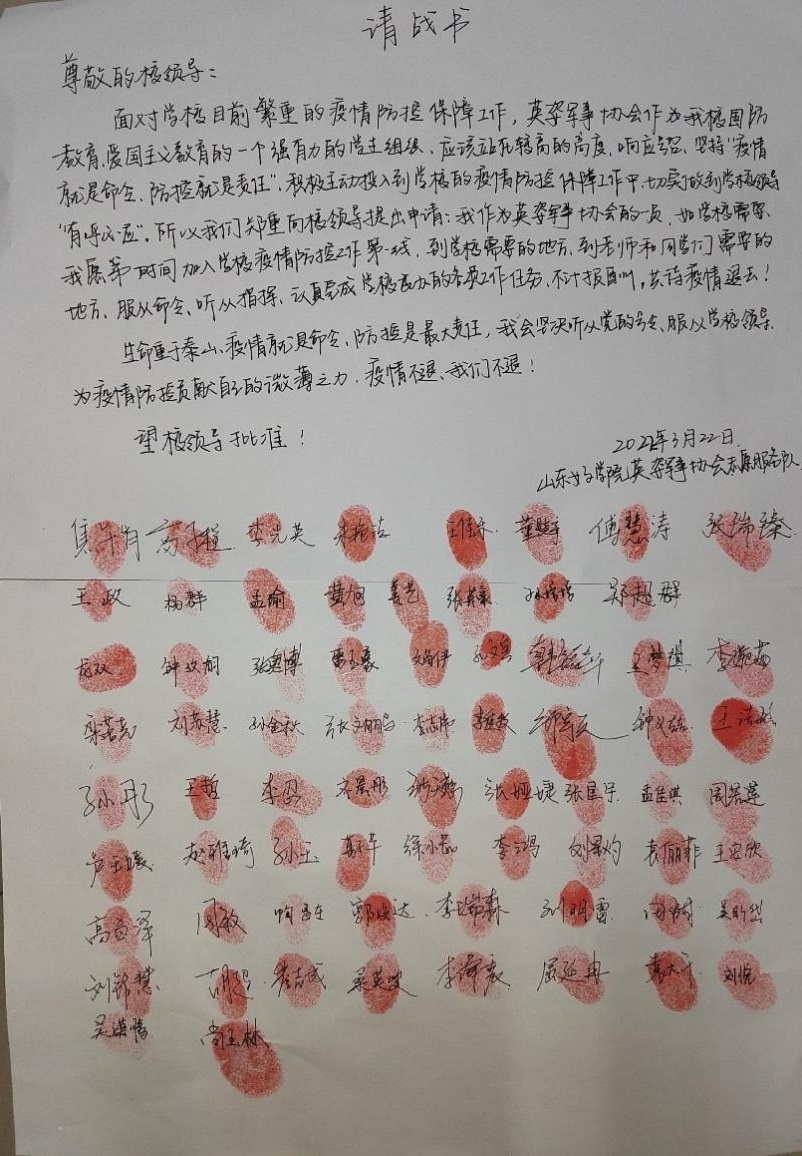 请战书
尊敬的校领导：
面对学校目前繁重的疫情防控保障工作，英姿军事协会作为我校国防
教育、爱国主义教育的一个强有力的学生组织、应该站在较高的高度、响应号召、坚持“疫情
就是命令、防控就是责任”，积极主动投入到学校的疫情防控保障工作中，切实做到学校领导
“有呼必应”。所以我们郑重向校领导提出申请：我作为英姿军事协会的一员，如学校需要、
我愿第一时间加入学校疫情防控工作第一线，到学校需要的地方、到老师和同学们需要的
地方、服从命令、听从指挥、认真完成学校交办的各项工作任务、不计报酬，共待疫情退去！
生命重于泰山、疫情就是命令、防控是最大责任，我会坚决听从党的号令、服从学校领导、
为疫情防控贡献自己的微薄之力．疫情不退、我们不退！
望校领导批准！
2022年3月22日
山东女子学院英姿军事协会志愿服务队
李光英 傅慧涛 张瑞臻
王政 杨群 孟瑜 黄旭 姜艺 吴超群
龙双 钟玟桐 张奥博 王梦琪
梁若尧 刘慕慧 孙金秋 李志伟
孙彤 王哲 张娅婕 孟佳淇 周若莲
卢玉媛 赵雅琦 孙玉 刘翠灼 袁俪菲 王宏欣
周敏 李瑞森 刘明雷
胡超 屈延冉 刘悦
尚玉林